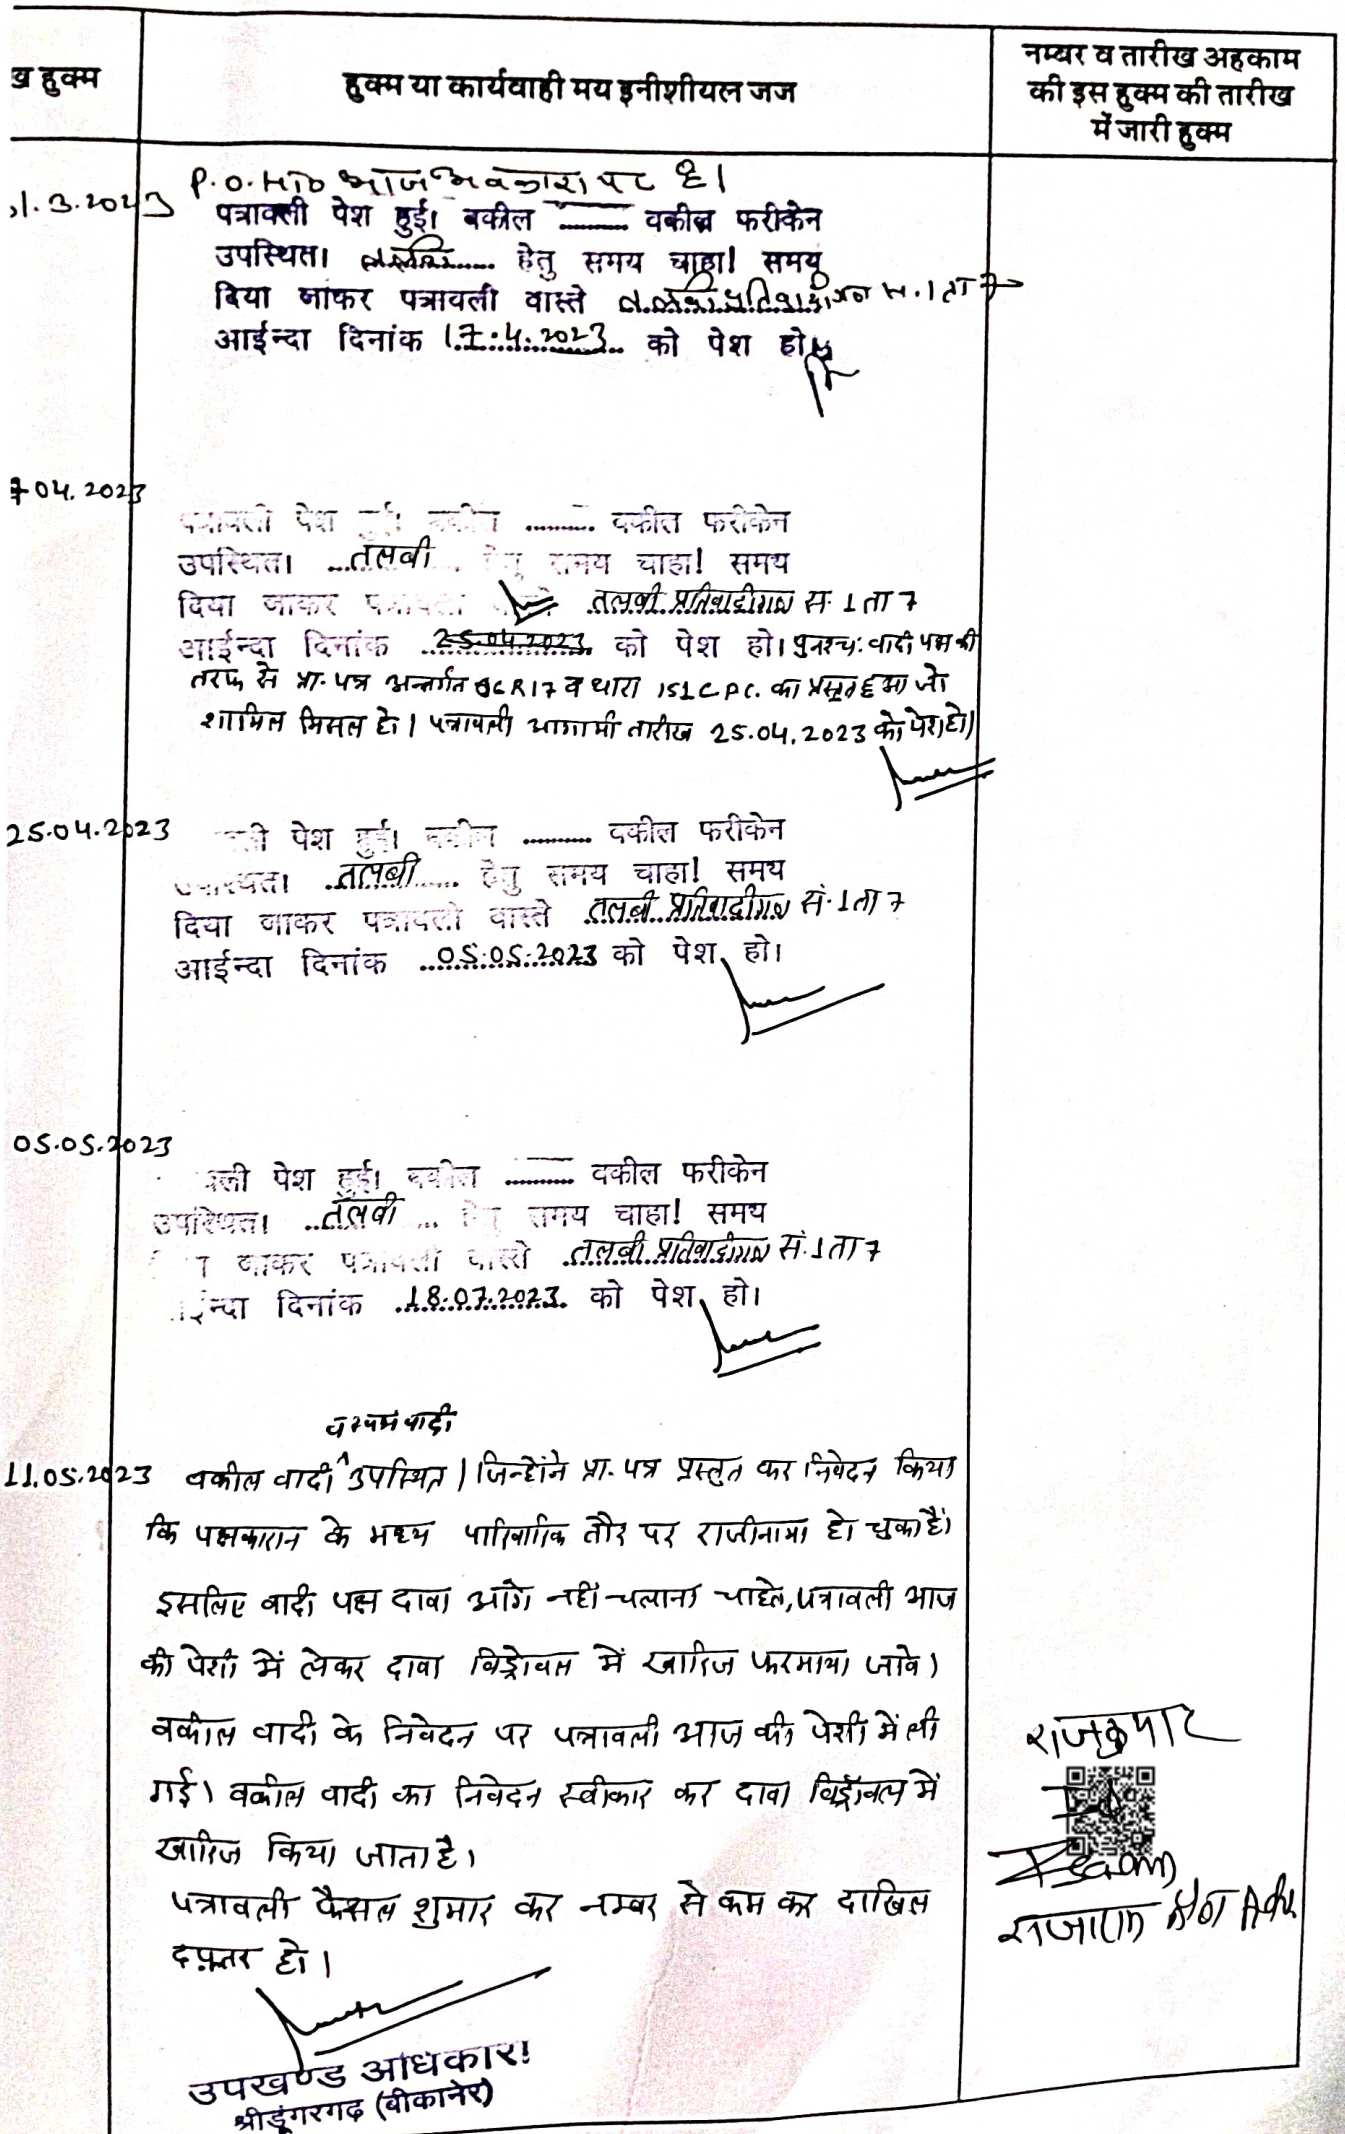 ख हुक्म
हुक्म या कार्यवाही मय इनीशीयल जज
नम्बर व तारीख अहकाम
की इस हुक्म की तारीख
में जारी हुक्म
1.3.2023
P.O. आज अवकाश पर है।
पत्रावली पेश हुई। वकील ......... वकील फरीकेन
उपस्थित। तलबी हेतु समय चाहा! समय
दिया जाकर पत्रावली वास्ते तलबी प्रतिवादीगण स. 1 ता 7
आईन्दा दिनांक 17.4.2023 को पेश हो
7 04.2023
पत्रावली पेश हुई। वकील ......... वकील फरीकेन
उपस्थित। तलबी हेतु समय चाहा! समय
दिया जाकर पत्रावली तलबी प्रतिवादीगण स. 1 ता 7
आईन्दा दिनांक 25.04.2023 को पेश हो। पुनश्च: वादी पक्ष की
तरफ से प्रा. पत्र अन्तर्गत R17 व धारा 151 C.P.C. का प्रस्तुत हुआ जो
शामिल मिसल हो। पत्रावली आगामी तारीख 25.04.2023 को पेश हो।
25.04.2023
ली पेश हुई। वकील ......... वकील फरीकेन
उपस्थित। तलबी हेतु समय चाहा! समय
दिया जाकर पत्रावली वास्ते तलबी प्रतिवादीगण सं. 1 ता 7
आईन्दा दिनांक 05.05.2023 को पेश हो।
05.05.2023
वली पेश हुई। वकील ......... वकील फरीकेन
उपस्थित। तलबी हेतु समय चाहा! समय
जाकर पत्रावली वास्ते तलबी प्रतिवादीगण सं. 1 ता 7
ईन्दा दिनांक 18.07.2023 को पेश हो।
वादी
11.05.2023 वकील वादी ^ उपस्थित। जिन्होंने प्रा. पत्र प्रस्तुत कर निवेदन किया
कि पक्षकारान के मध्य पारिवारिक तौर पर राजीनामा हो चुका है।
इसलिए वादी पक्ष दावा आगे नहीं चलाना चाहते, पत्रावली आज
की पेशी में लेकर दावा विड्रोवल में खारिज फरमाया जावे।
वकील वादी के निवेदन पर पत्रावली आज की पेशी में ली
गई। वकील वादी का निवेदन स्वीकार कर दावा विड्रोवल में
खारिज किया जाता है।
पत्रावली फैसल शुमार कर नम्बर से कम कर दाखिल
दफ़्तर हो।
राजकुमार
उपखण्ड अधिकारी
श्रीडूंगरगढ़ (बीकानेर)